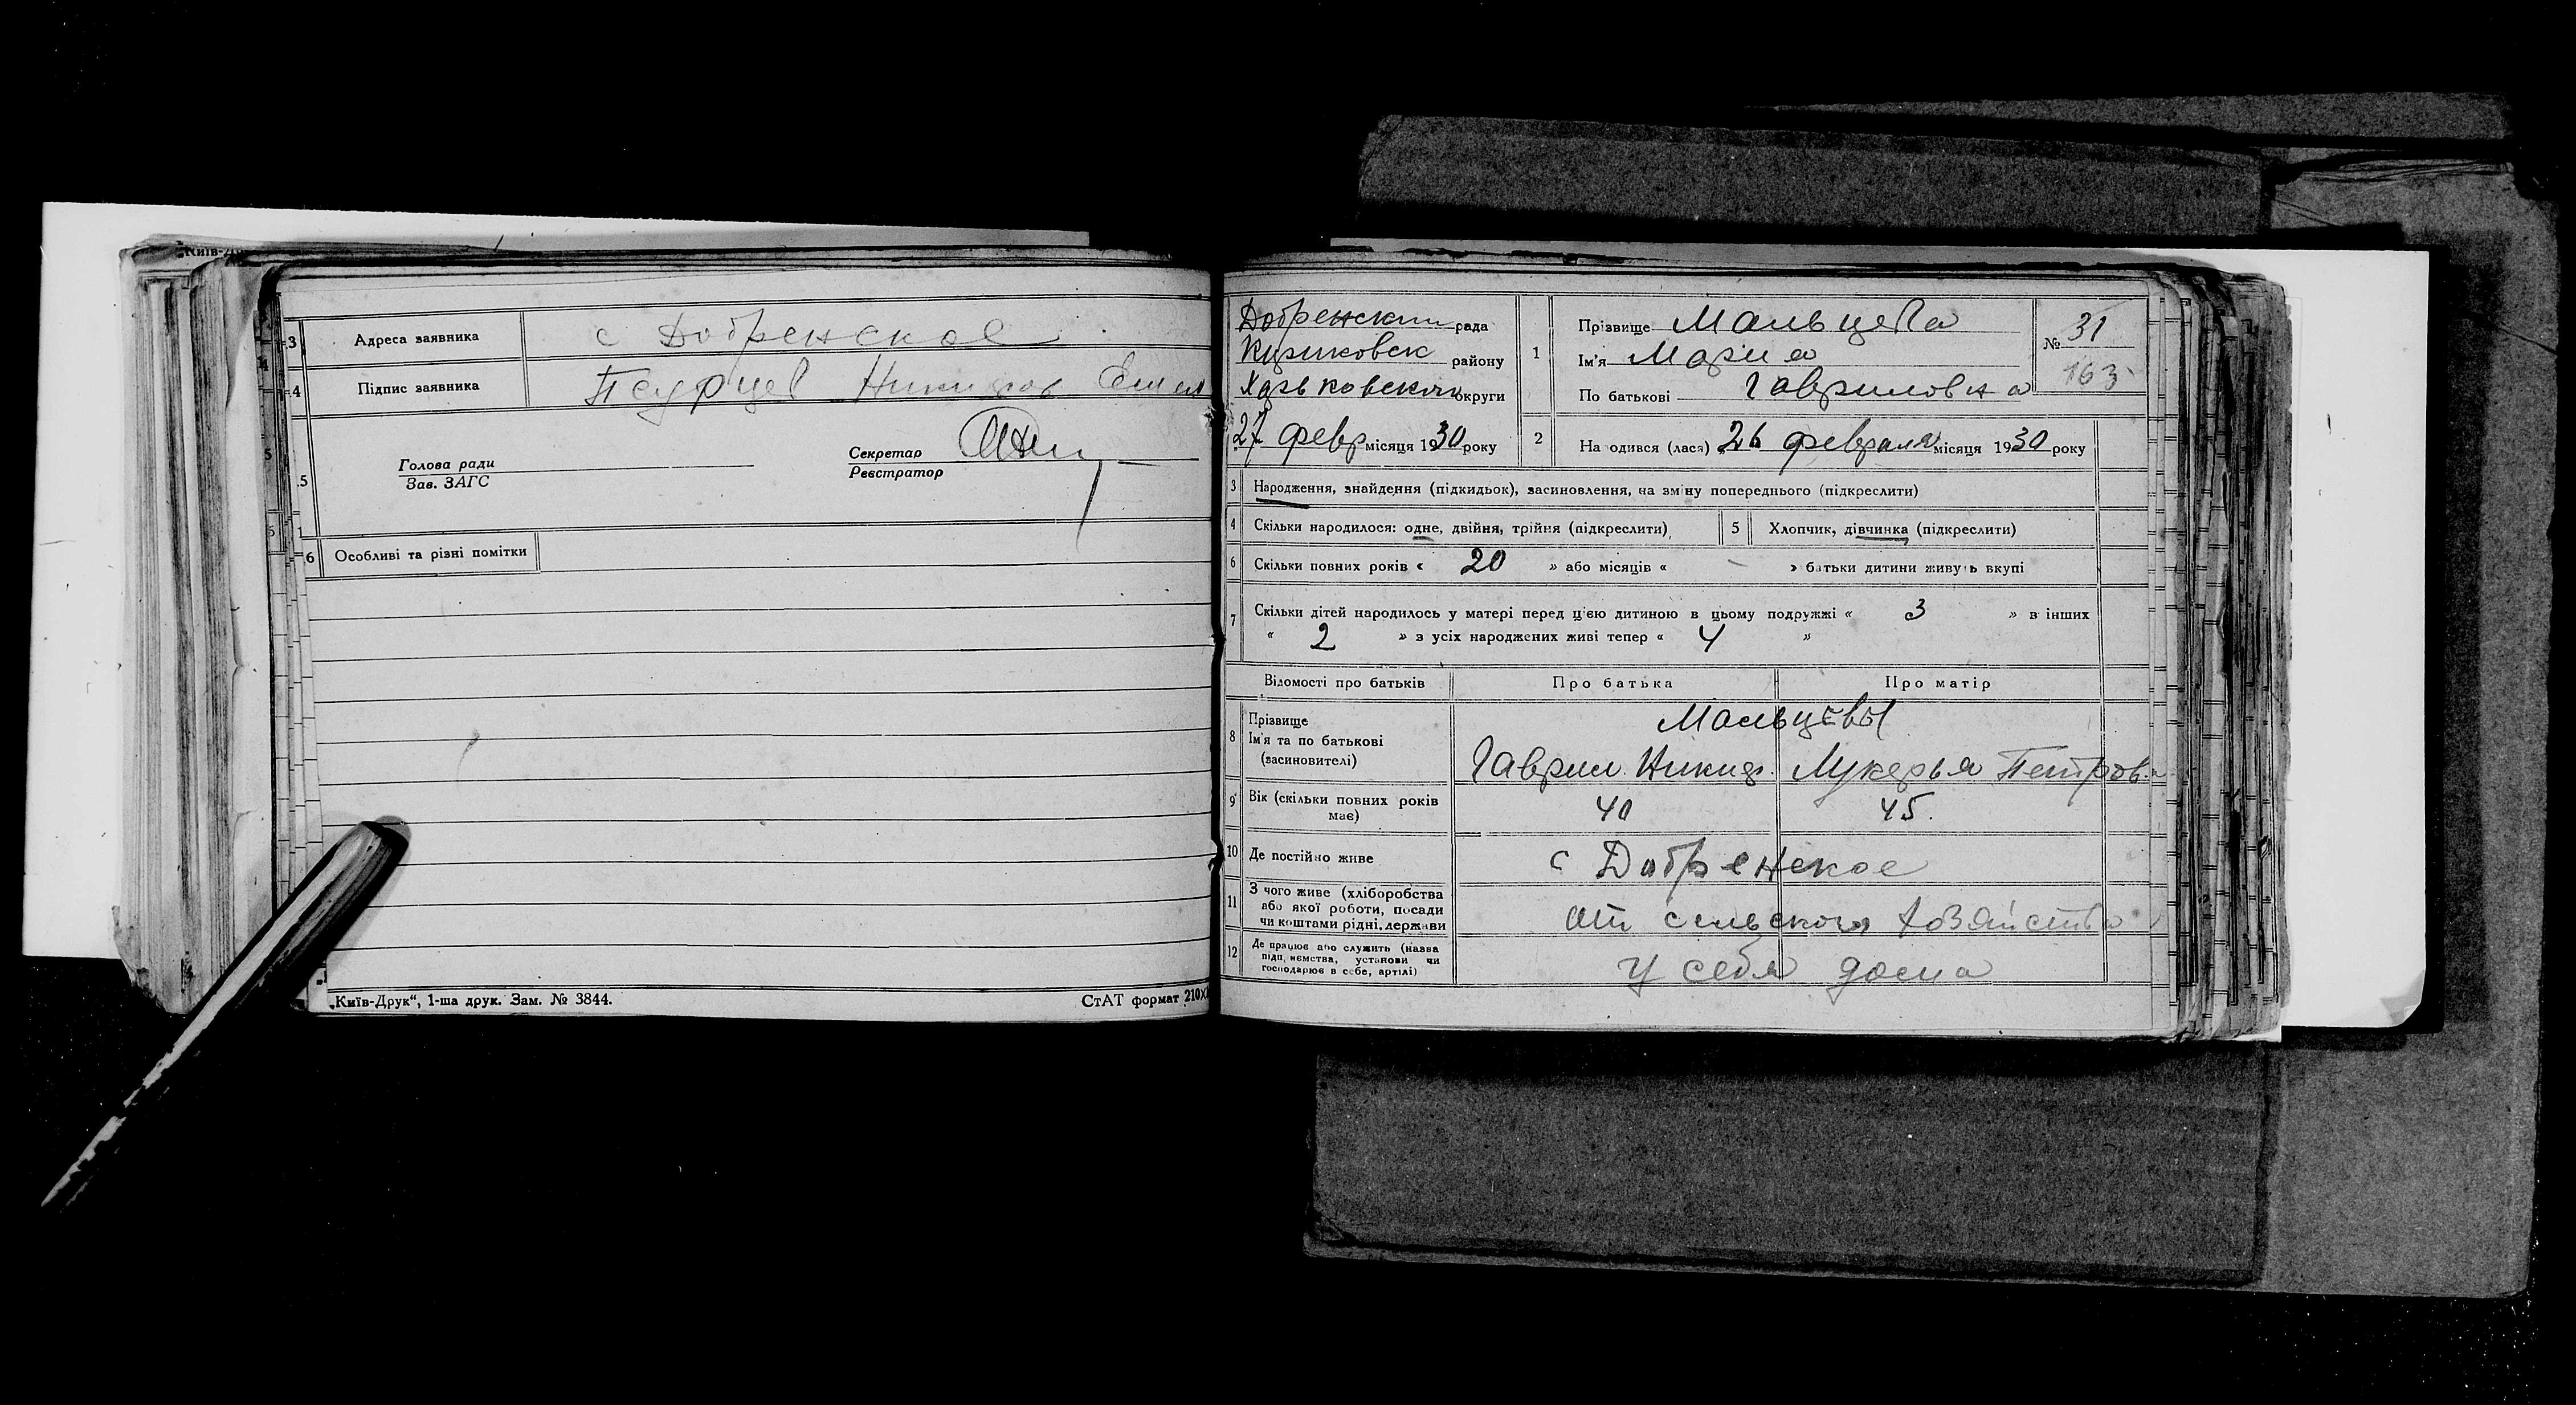 Київ-Др
3 Адреса заявника с Добренское
4 Підпис заявника Псурцев Никифор Емел
5 Голова ради Секретар
Зав. ЗАГС Реєстратор
6 Особливі та різні помітки
„Київ-Друк“, 1-ша друк. Зам. № 3844. СтАТ формат 210х
Добренской рада
района
Харьковского округи
27 февр місяця 1930 року
1 Прізвище Мальцева
Ім'я Мария
По батькові Гавриловна
№ 31
163
2 На одився (лася) 26 февраля місяця 1930 року
3 Народження, знайдення (підкидьок), засиновлення, на зміну попереднього (підкреслити)
4 Скільки народилося: одне, двійня, трійня (підкреслити) 5 Хлопчик, дівчинка (підкреслити)
6 Скільки повних років « 20 » або місяців « - » батьки дитини живуть вкупі
7 Скільки дітей народилось у матері перед цією дитиною в цьому подружжі « 3 » в інших
« 2 » з усіх народжених живі тепер « 4 »
Відомості про батьків Про батька Про матір
8 Прізвище Мальцевы
Ім'я та по батькові
(васиновителі) Гаврил Никиф. Лукерья Петров.
9 Вік (скільки повних років має) 40 45.
10 Де постійно живе с Добренское
11 З чого живе (хліборобства
або якої роботи, посади
чи коштами рідні, держави от сельского хозяйства
12 Де працює або служить (назва
підп, иємства, установи чи
господарює в себе, артілі) у себя дома